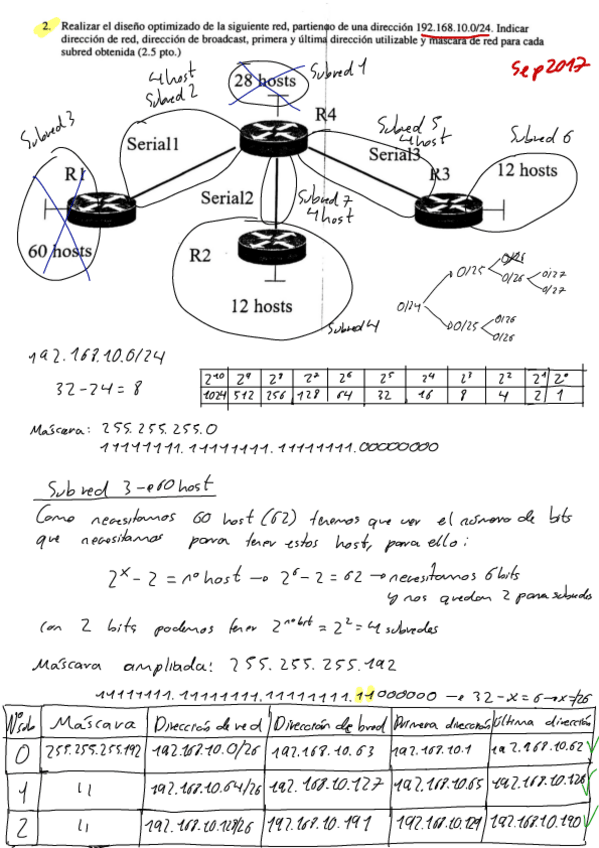 2. Realizar el diseño optimizado de la siguiente red, partiendo de una dirección 192.168.10.0/24. Indicar
dirección de red, dirección de broadcast, primera y última dirección utilizable y máscara de red para cada
subred obtenida (2.5 pto.)
Sep2017
4 host
Subred 2
28 hosts
Subred 1
Subred 3
R4
Serial1
Subred 5
4 host
Serial3
Subred 6
R1
R3
12 hosts
Serial2
Subred 7
4 host
60 hosts
R2
12 hosts
Subred 4
0/24
0/25
0/26
0/26
0/27
0/27
0/25
0/26
0/26
192.168.10.0/24
32-24 = 8
2^10 2^9 2^8 2^7 2^6 2^5 2^4 2^3 2^2 2^1 2^0
1024 512 256 128 64 32 16 8 4 2 1
Máscara: 255.255.255.0
11111111.11111111.11111111.00000000
Subred 3 → 60 host
Como necesitamos 60 host (62) tenemos que ver el número de bits
que necesitamos para tener estos host, para ello:
2^x - 2 = nº host → 2^6 - 2 = 62 → necesitamos 6 bits
y nos quedan 2 para subredes
Con 2 bits podemos tener 2^nº bit = 2^2 = 4 subredes
Máscara ampliada: 255.255.255.192
11111111.11111111.11111111.11000000 → 32-x=6→x=/26
Nº sub Máscara Dirección de red Dirección de broad Primera dirección Última dirección
0 255.255.255.192 192.168.10.0/26 192.168.10.63 192.168.10.1 192.168.10.62 ✓
1 " 192.168.10.64/26 192.168.10.127 192.168.10.65 192.168.10.126 ✓
2 " 192.168.10.128/26 192.168.10.191 192.168.10.129 192.168.10.190 ✓